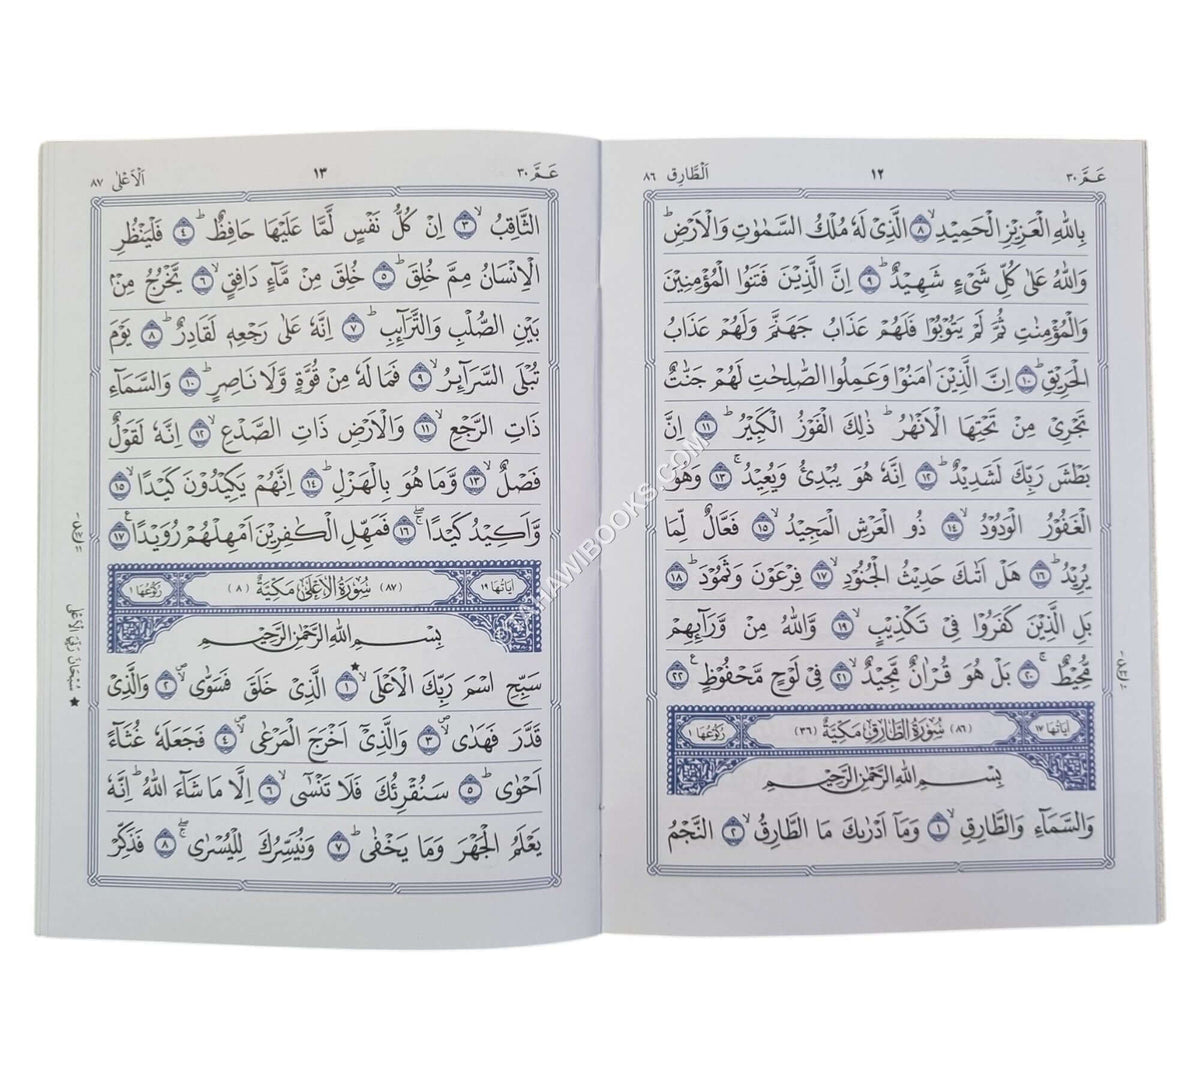 عَمَّ ٣٠
١٢
اَلطَّارِق ٨٦
بِاللّٰهِ الْعَزِيْزِ الْحَمِيْدِۙ ٨ الَّذِىْ لَهٗ مُلْكُ السَّمٰوٰتِ وَالْاَرْضِؕ
وَاللّٰهُ عَلٰى كُلِّ شَىْءٍ شَهِيْدٌؕ ٩ اِنَّ الَّذِيْنَ فَتَنُوا الْمُؤْمِنِيْنَ
وَالْمُؤْمِنٰتِ ثُمَّ لَمْ يَتُوْبُوْا فَلَهُمْ عَذَابُ جَهَنَّمَ وَلَهُمْ عَذَابُ
الْحَرِيْقِؕ ١٠ اِنَّ الَّذِيْنَ اٰمَنُوْا وَعَمِلُوا الصّٰلِحٰتِ لَهُمْ جَنّٰتٌ
تَجْرِىْ مِنْ تَحْتِهَا الْاَنْهٰرُؕ ذٰلِكَ الْفَوْزُ الْكَبِيْرُؕ ١١ اِنَّ
بَطْشَ رَبِّكَ لَشَدِيْدٌؕ ١٢ اِنَّهٗ هُوَ يُبْدِئُ وَيُعِيْدُۚ ١٣ وَهُوَ
الْغَفُوْرُ الْوَدُوْدُۙ ١٤ ذُو الْعَرْشِ الْمَجِيْدُۙ ١٥ فَعَّالٌ لِّمَا
يُرِيْدُؕ ١٦ هَلْ اَتٰىكَ حَدِيْثُ الْجُنُوْدِۙ ١٧ فِرْعَوْنَ وَثَمُوْدَؕ ١٨
بَلِ الَّذِيْنَ كَفَرُوْا فِىْ تَكْذِيْبٍۙ ١٩ وَّاللّٰهُ مِنْ وَّرَآئِهِمْ
مُّحِيْطٌۚ ٢٠ بَلْ هُوَ قُرْاٰنٌ مَّجِيْدٌۙ ٢١ فِىْ لَوْحٍ مَّحْفُوْظٍ ٢٢
اٰيَاتُهَا ١٧ (٨٦) سُوْرَةُ الطَّارِقِ مَكِّيَّةٌ (٣٦) رُكُوْعُهَا ١
بِسْمِ اللّٰهِ الرَّحْمٰنِ الرَّحِيْمِ
وَالسَّمَآءِ وَالطَّارِقِۙ ١ وَمَاۤ اَدْرٰىكَ مَا الطَّارِقُۙ ٢ النَّجْمُ
عَمَّ ٣٠
١٣
اَلْاَعْلٰى ٨٧
الثَّاقِبُۙ ٣ اِنْ كُلُّ نَفْسٍ لَّمَّا عَلَيْهَا حَافِظٌؕ ٤ فَلْيَنْظُرِ
الْاِنْسَانُ مِمَّ خُلِقَؕ ٥ خُلِقَ مِنْ مَّآءٍ دَافِقٍۙ ٦ يَّخْرُجُ مِنْۢ
بَيْنِ الصُّلْبِ وَالتَّرَآئِبِؕ ٧ اِنَّهٗ عَلٰى رَجْعِهٖ لَقَادِرٌؕ ٨ يَوْمَ
تُبْلَى السَّرَآئِرُۙ ٩ فَمَا لَهٗ مِنْ قُوَّةٍ وَّلَا نَاصِرٍؕ ١٠ وَالسَّمَآءِ
ذَاتِ الرَّجْعِۙ ١١ وَالْاَرْضِ ذَاتِ الصَّدْعِۙ ١٢ اِنَّهٗ لَقَوْلٌ
فَصْلٌۙ ١٣ وَّمَا هُوَ بِالْهَزْلِؕ ١٤ اِنَّهُمْ يَكِيْدُوْنَ كَيْدًاۙ ١٥
وَّاَكِيْدُ كَيْدًاۖۚ ١٦ فَمَهِّلِ الْكٰفِرِيْنَ اَمْهِلْهُمْ رُوَيْدًا ١٧
اٰيَاتُهَا ١٩ (٨٧) سُوْرَةُ الْاَعْلٰى مَكِّيَّةٌ (٨) رُكُوْعُهَا ١
بِسْمِ اللّٰهِ الرَّحْمٰنِ الرَّحِيْمِ
سَبِّحِ اسْمَ رَبِّكَ الْاَعْلَىۙ ★ ١ الَّذِىْ خَلَقَ فَسَوّٰىۙ ٢ وَالَّذِىْ
قَدَّرَ فَهَدٰىۙ ٣ وَالَّذِىْۤ اَخْرَجَ الْمَرْعٰىۙ ٤ فَجَعَلَهٗ غُثَآءً
اَحْوٰىؕ ٥ سَنُقْرِئُكَ فَلَا تَنْسٰٓىۙ ٦ اِلَّا مَا شَآءَ اللّٰهُؕ اِنَّهٗ
يَعْلَمُ الْجَهْرَ وَمَا يَخْفٰىؕ ٧ وَنُيَسِّرُكَ لِلْيُسْرٰىۖۚ ٨ فَذَكِّرْ
★ سُبْحَانَ رَبِّىَ الْاَعْلٰى
TAHAWIBOOKS.COM